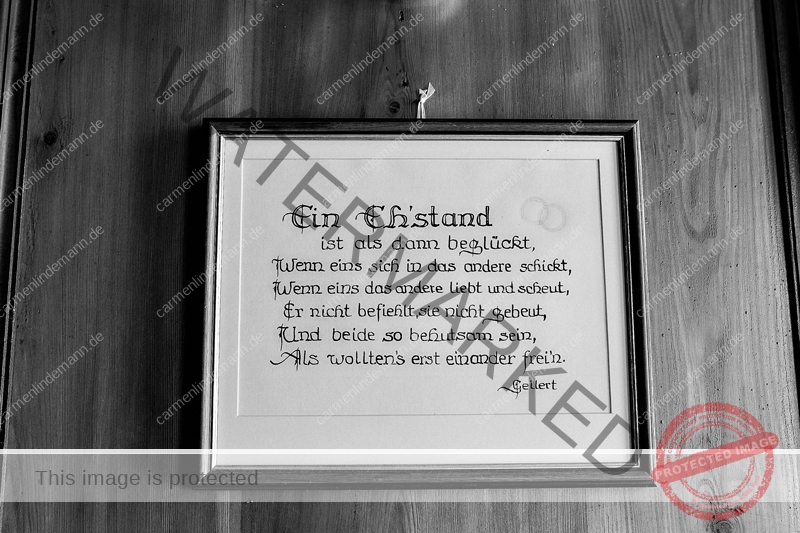 Ein Eh'stand
ist als dann beglückt,
Wenn eins sich in das andere schickt,
Wenn eins das andere liebt und scheut,
Er nicht befiehlt, sie nicht gebeut,
Und beide so behutsam sein,
Als wollten's erst einander frei'n.
Gellert
WATERMARKED
carmenlindemann.de
This image is protected
PROTECTED IMAGE